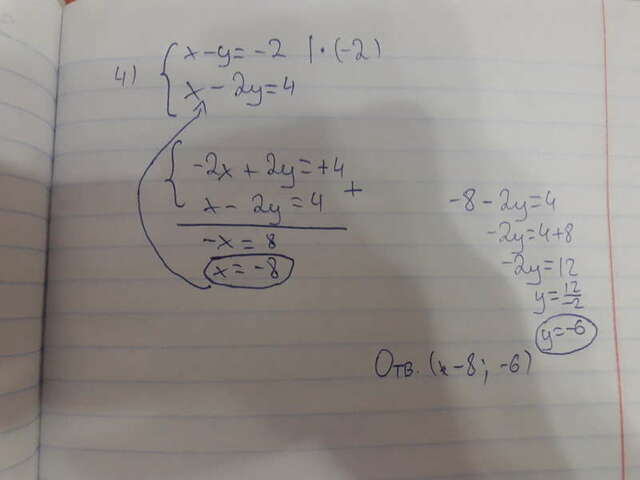 4) { x - y = -2 | · (-2)
x - 2y = 4
{ -2x + 2y = +4
x - 2y = 4 +
-x = 8
x = -8
-8 - 2y = 4
-2y = 4+8
-2y = 12
y = 12/-2
y = -6
Отв. (x-8; -6)